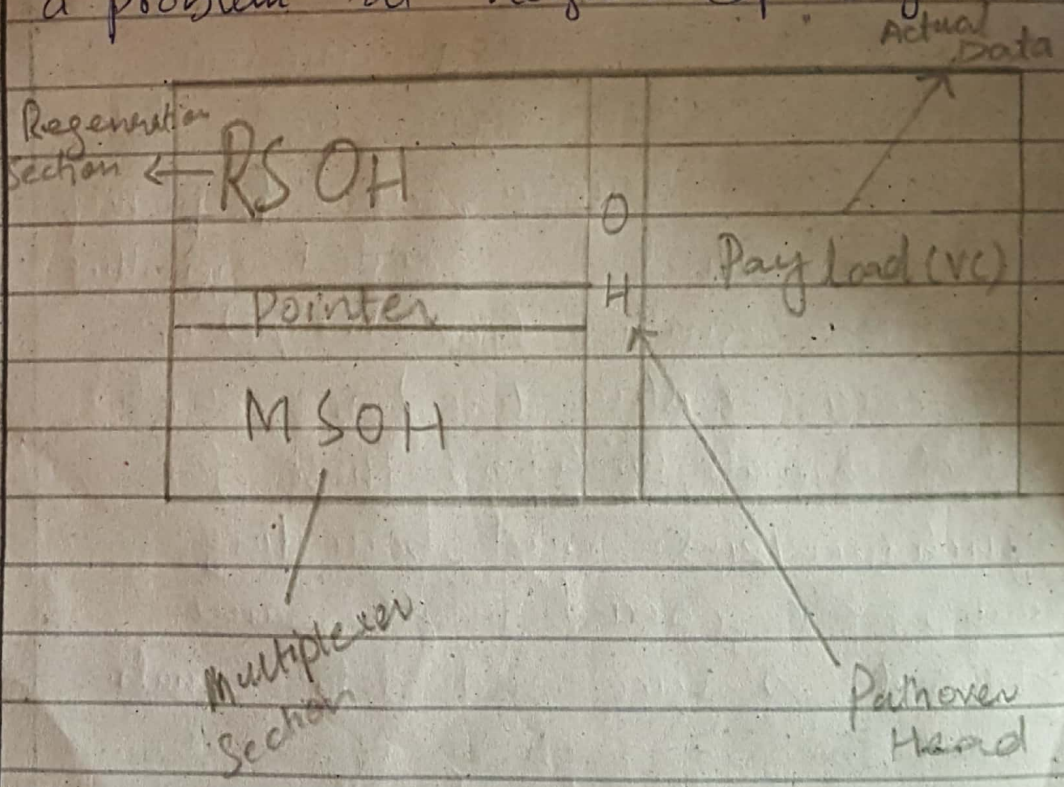 a problem
Actual
Data
Regeneration
Section
RSOH
O
H
Payload (VC)
Pointer
MSOH
Multiplexer
Section
Pathover
Head